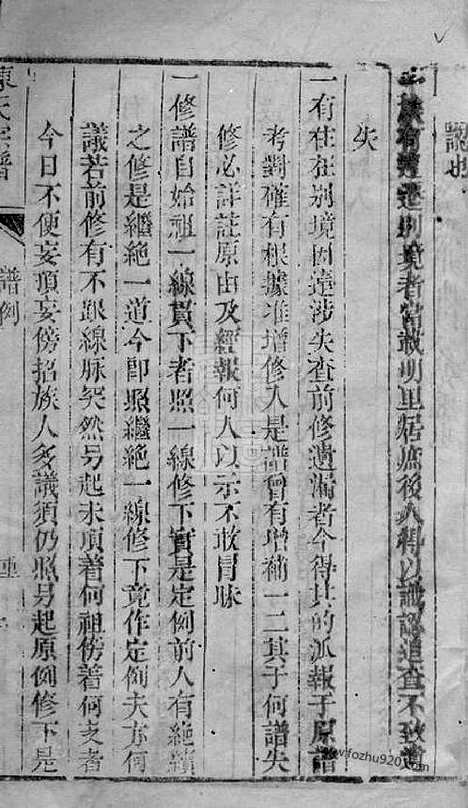 認也
一族有遷遷別境者當載明里居庶後人得以識認追查不致遺
失
一有在在別境因遠涉失查前修遺漏者今得其的派報于原譜
考對確有根據准增修入是譜曾有增補一二其子何譜失
修必詳註原由及經報何人以示不敢冒脉
一修譜自始祖一線貫下者照一線修下實是定例前人有絶續
之修是繼絶一道今卽照繼絶一線修下竟作定例夫亦何
議若前修有不跟線脉突然另起未頂着何祖傍着何支者
今日不便妄頂妄傍招族人多議須仍照另起原例修下是
陳氏宗譜
譜例
www.fozhu920.com